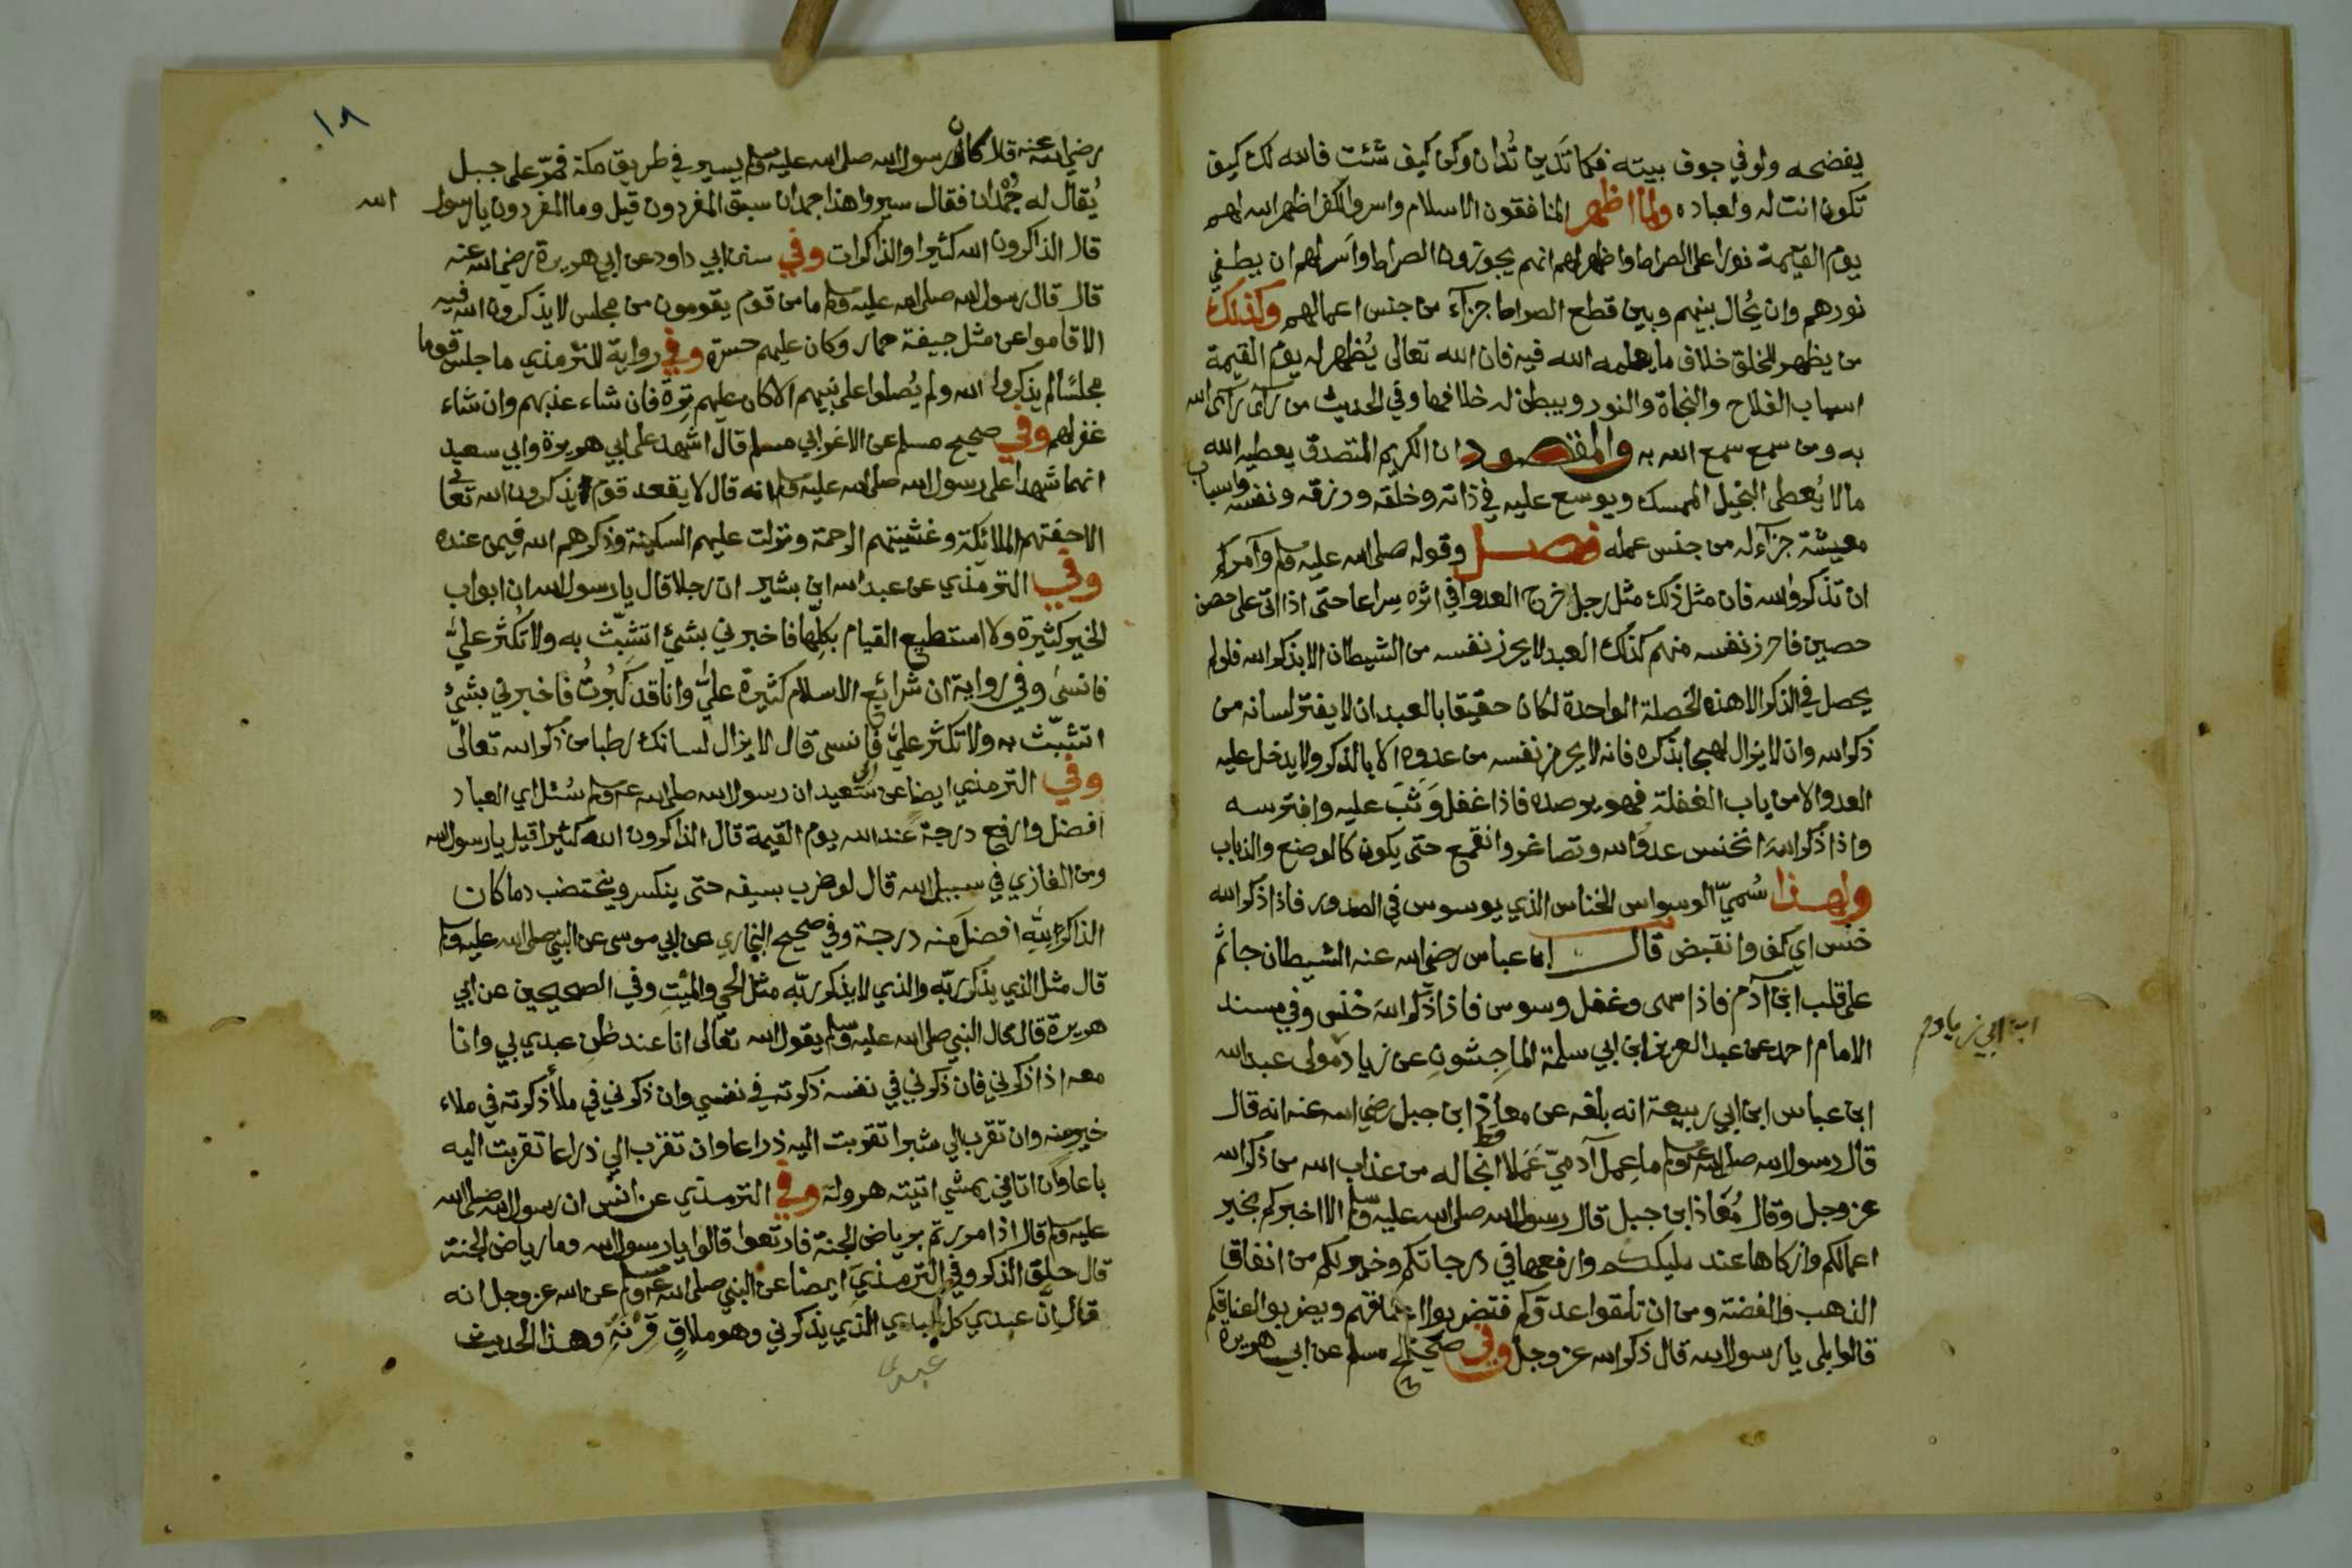 يفضحه ولو في جوف بيته فكما تَدين تُدان وكن كيف شئت فالله لك كيف
تكون انت له ولعباده ولما اظهر المنافقون الاسلام واسروا الكفر اظهر الله لهم
يوم القيٰمة نورا على الصراط واظهر لهم انهم يجوزون الصراط واَسر لهم ان يطفي
نورهم وان يُحال بينهم وبين قطع الصراط جزآء من جنس اعمالهم وكذلك
من يظهر للخلق خلاف ما يعلمه الله فيه فان الله تعالى يُظهر له يوم القيمة
اسباب الفلاح والنجاة والنور ويبطن له خلافها وفي الحديث من رآى رآى الله
به ومن سمع سمع الله به والمقصود ان الكريم المتصدق يعطيه الله
مالا يُعطى البخيل الممسك ويوسع عليه في ذاته وخلقه ورزقه ونفسه واسباب
معيشة جزآء له من جنس عمله فصل وقوله صلى الله عليه وسلم وآمركم
ان تذكروا الله فان مثل ذلك مثل رجل خرج العدو في اثره سِراعا حتى اذا اتى على حصن
حصين فاحرز نفسه منهم كذلك العبد لا يحرز نفسه من الشيطان الا بذكر الله فلو لم
يحصل في الذكر الا هذه الخصلة الواحدة لكان حقيقا بالعبد ان لا يفتر لسانه من
ذكر الله وان لا يزال لهجا بذكره فانه لا يحرز نفسه من عدوه الا بالذكر ولا يدخل عليه
العدو الا من باب الغفلة فهو يرصده فاذا غفل وَثَبَ عليه وافترسه
واذا ذكر اللهَ انخنس عدو الله وتصاغر وانقمع حتى يكون كالوضع والذباب
ولهذا سُميّ الوسواس الخناس الذي يوسوس في الصدور فاذا ذكر الله
خنس اي كف وانقبض قال ابن عباس رضي الله عنه الشيطان جاثم
على قلب ابن آدم فاذا سهى وغفل وسوس فاذا ذكر اللهَ خنس وفي مسند
الامام احمد عن عبد العزيز ابن ابي سلمة الماجِشون عن زياد مولى عبد الله
ابن ابي زياد م
ابن عباس ابن ابي ربيعة انه بلغه عن معاذ ابن جبل رضي الله عنه انه قال
قال رسول الله صلى الله عليه وسلم ما عمل آدميّ عَملا قط انجا له من عذاب الله من ذكر الله
عز وجل وقال مُعَاذ ابن جبل قال رسول الله صلى الله عليه وسلم الا اخبركم بخير
اعمالكم وازكاها عند مليككم وارفعها في درجاتكم وخير لكم من انفاق
الذهب والفضة ومن ان تلقوا عدوكم فتضربوا اعناقهم ويضربوا اعناقكم
قالوا بلى يا رسول الله قال ذكر الله عز وجل وفي صحيح مسلم عن ابي هريرة
١٨
رضي الله عنه قال كان رسول الله صلى الله عليه وسلم يسير في طريق مكة فمرّ على جبل
يُقال له جُمْدان فقال سيروا هذا جمدان سبق المفردون قيل وما المفردون يا رسول الله
قال الذاكرون الله كثيرا والذاكرات وفي سنن ابي داود عن ابي هريرة رضي الله عنه
قال قال رسول الله صلى الله عليه وسلم ما من قوم يقومون من مجلس لا يذكرون الله فيه
الا قاموا عن مثل جيفة حمار وكان عليهم حسرة وفي رواية للترمذي ما جلس قوما
مجلسًا لم يذكروا الله ولم يُصلوا على نبيهم الا كان عليهم تِرَة فان شاء عذبهم وان شاء
غفر لهم وفي صحيح مسلم عن الاغر ابي مسلم قال اشهد على ابي هريرة وابي سعيد
انهما شهدا على رسول الله صلى الله عليه وسلم انه قال لا يقعد قوم يذكرون الله تعالى
الا حفتهم الملائكة وغشيتهم الرحمة ونزلت عليهم السكينة وذكرهم الله فيمن عنده
وفي الترمذي عن عبد الله ابن بشير ان رجلا قال يا رسول الله ان ابواب
الخير كثيرة ولا استطيع القيام بكلِّها فاخبرني بشيْ اتشبّث به ولا تُكثر عليَّ
فانسىٰ وفي رواية ان شرائع الاسلام كثيرة عليَّ وانا قد كَبُرتُ فاخبرني بشيْ
اتشبّث به ولا تكثر عليَّ فانسى قال لا يزال لسانك رطبا من ذكر الله تعالى
وفي الترمذي ايضا عن ابي سعيد ان رسول الله صلى الله عليه وسلم سُئل اي العباد
افضل وارفع درجة عند الله يوم القيمة قال الذاكرون الله كثيرا قيل يا رسول الله
ومن الغازي في سبيل الله قال لو ضرب بسيفه حتى ينكسر ويختضب دما كان
الذاكر لله افضل منه درجة وفي صحيح البخاري عن ابي موسى عن النبي صلى الله عليه وسلم
قال مثل الذي يذكر ربّه والذي لا يذكر ربّه مثل الحي والميت وفي الصحيحين عن ابي
هريرة قال قال النبي صلى الله عليه وسلم يقول الله تعالى انا عند ظن عبدي بي وانا
معه اذا ذكرني فان ذكرني في نفسه ذكرته في نفسي وان ذكرني في ملأ ذكرته في ملاء
خير منه وان تقرب الي شبرا تقربت اليه ذراعا وان تقرب الي ذراعا تقربت اليه
باعا وان اتاني يمشي اتيته هرولة وفي الترمذي عن انس ان رسول الله صلى الله
عليه وسلم قال اذا مررتم برياض الجنة فارتعوا قالوا يا رسول الله وما رياض الجنة
قال حلق الذكر وفي الترمذي ايضا عن النبي صلى الله عليه وسلم عن الله عز وجل انه
قال انّ عبدي كل عبدي الذي يذكرني وهو ملاقٍ قِرْنَه وهذا الحديث
عبدى